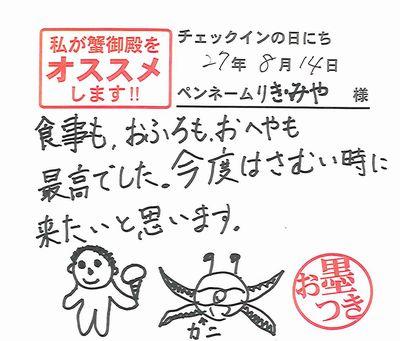 私が蟹御殿を
オススメ
します!!
チェックインの日にち
27年8月14日
ペンネームりき・みや 様
食事も、おふろも、おへやも
最高でした。今度はさむい時に
来たいと思います。
ガニ
お墨つき